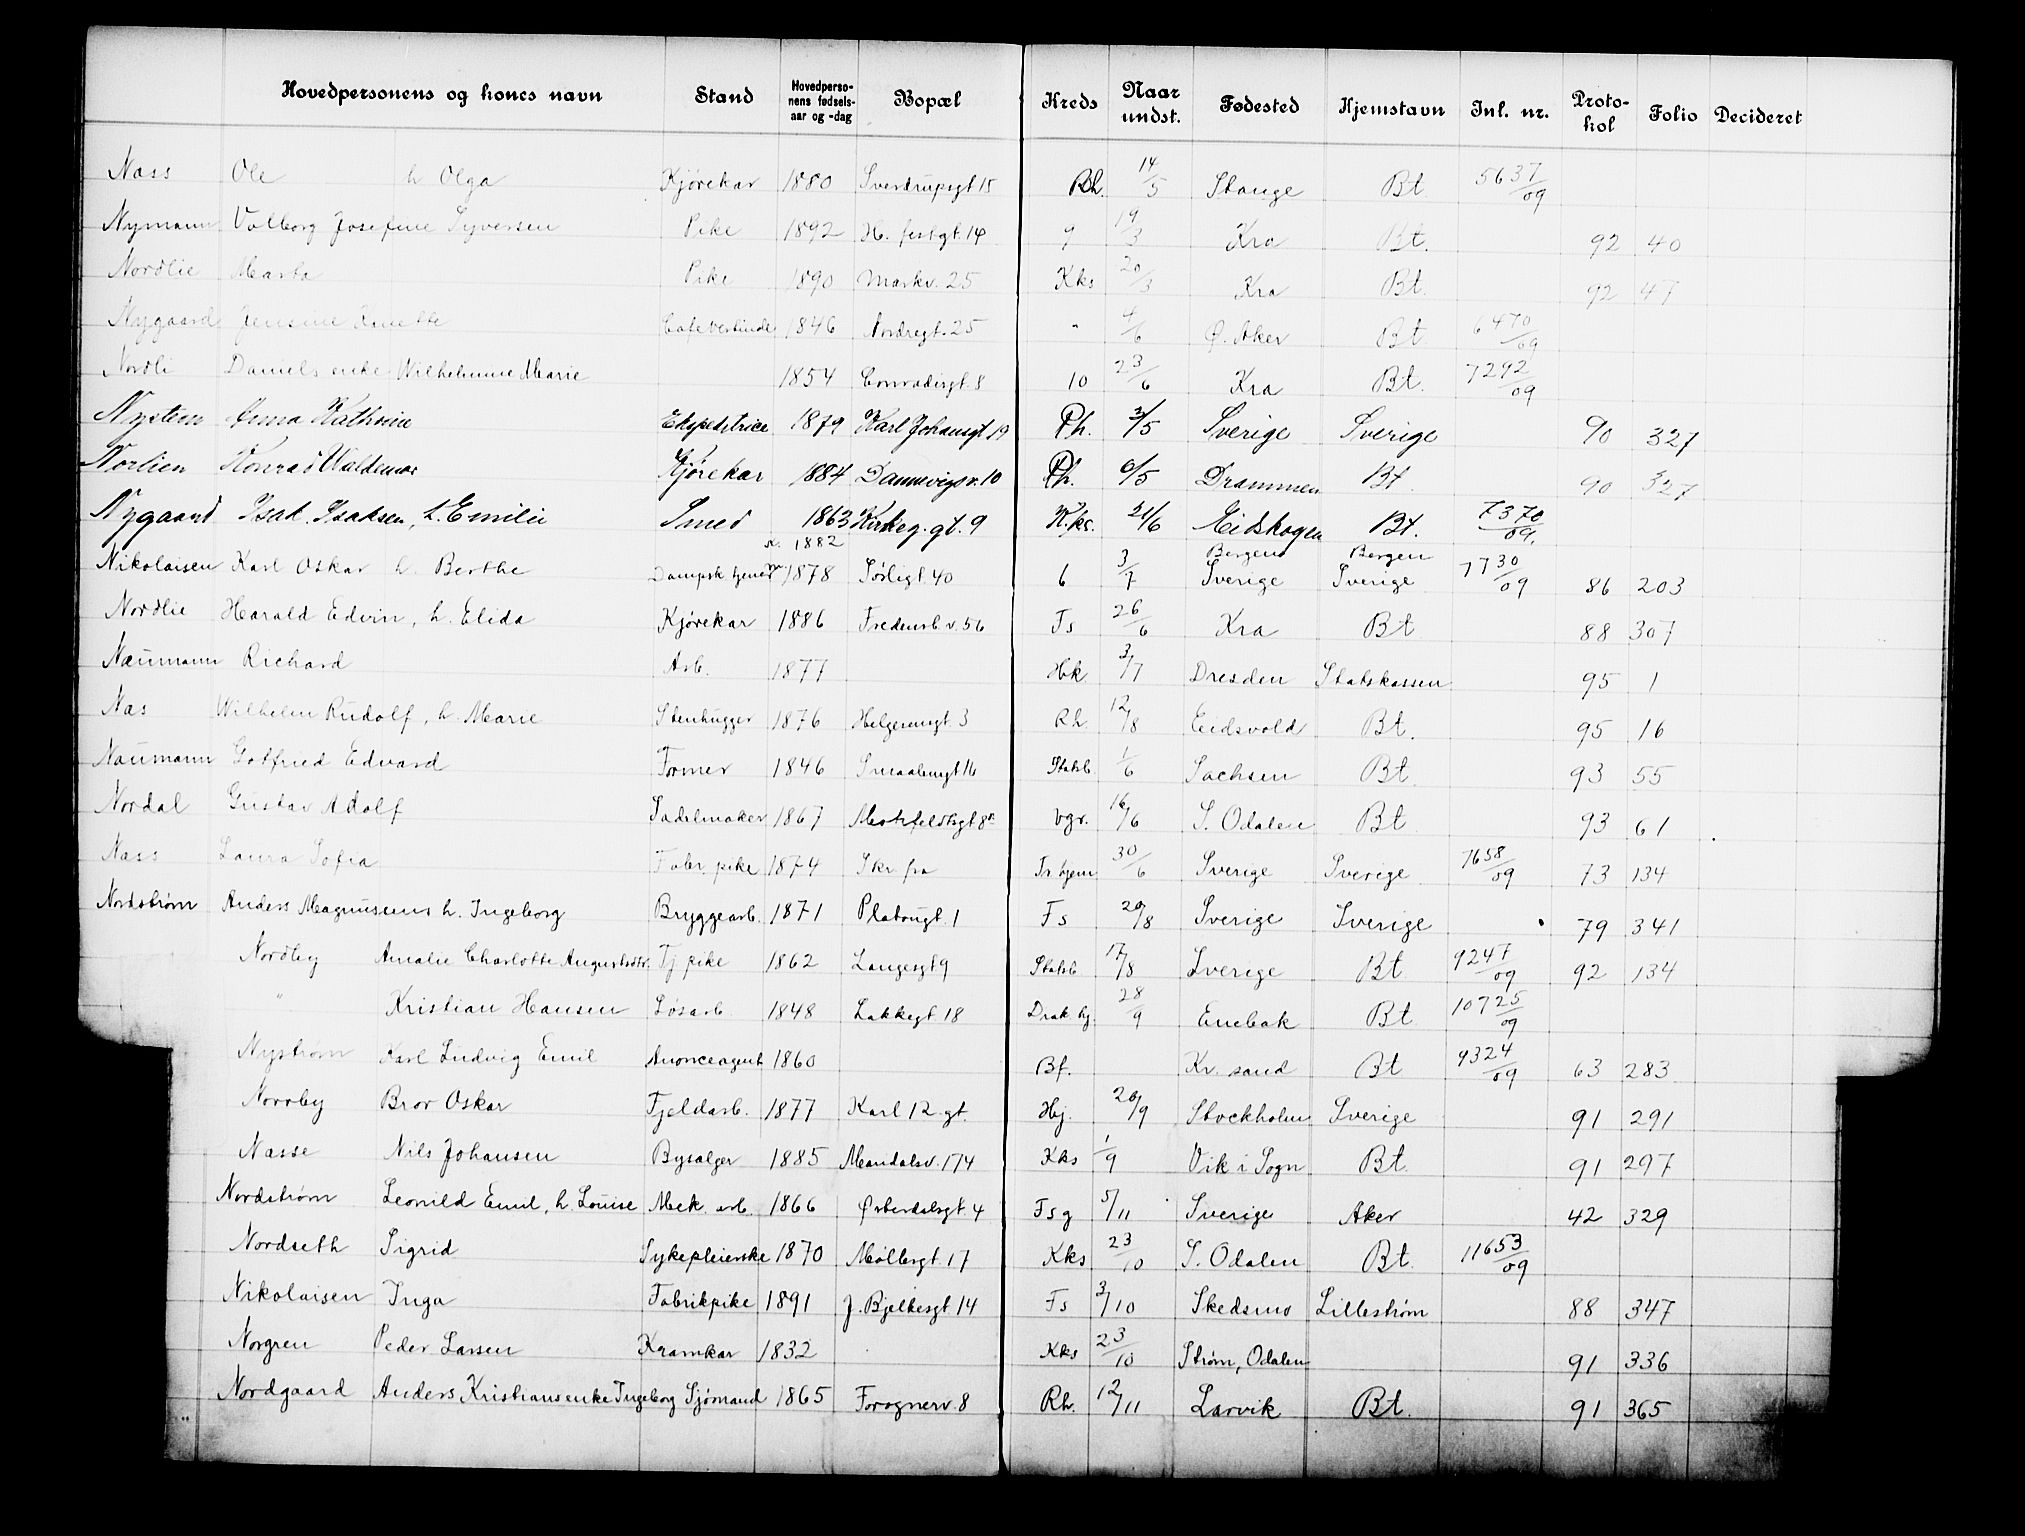 Hovedpersonens og kones navn Stand Hovedperso-nens fødsels-aar og -dag Bopæl Kreds Naar undst. Fødested Hjemstavn Inl. nr. Proto-kol Folio Decideret
Næss Ole h Olga Kjørekar 1880 Sverdrupsgt 15 Rh. 14/5 Stange Bt 5637/09
Nymann Valborg Josefine Syversen Pike 1892 H. festgt. 14 9 19/3 Kra Bt. 92 40
Nordlie Marta Pike 1890 Markv. 25 Kks 20/3 Kra Bt. 92 47
Nygaard Jensine Anette Cafevertinde 1846 Nordregt. 25 " 4/6 Ø. Aker Bt 6470/09
Nordli Daniels enke Wilhelmine Marie 1854 Conradisgt. 8 10 23/6 Kra Bt. 7292/09
Nysteen Anna Kathrine Ekspeditrice 1879 Karl Johansgt 19 Ph. 3/5 Sverige Sverige 90 327
Norlien Konrad Valdemar Kjørekar 1884 Dannevigsv. 10 Ph. 6/5 Drammen Bt 90 327
Nygaard Isak Isaksen, h. Emilie Smed 1863 Kirkeg. gt. 9 K.ks. 21/6 Eidskogen Bt. 7370/09.
Nikolaisen Karl Oskar h. Berthe Dampsk tjener m 1878 h. 1882 Sørligt 40 6 3/7 Bergen Sverige Bergen Sverige 7730/09 86 203
Nordlie Harald Edvin, h. Elida Kjørekar 1886 Fredensb. v. 56 Fs 26/6 Kra Bt 88 307
Naumann Richard Arb. 1877 Hk 3/7 Dresden Statskassen 95 1
Næs Wilhelm Rudolf, h. Marie Stenhugger 1876 Helgesensgt 3 Rh. 12/8 Eidsvold Bt. 95 16
Naumann Gotfried Edvard Former 1846 Smaalensgt 16 Statsb. 1/6 Sachsen Bt 93 55
Nordal Gustav Adolf Sadelmaker 1867 Motzfeldtsgt 8 Vgr. 16/6 S. Odalen Bt 93 61
Næss Laura Sofia Fabr. pike 1874 Skr. fra Tr. hjem 30/6 Sverige Sverige 7658/09 73 134
Nordstrøm Anders Magnussens h. Ingeborg Bryggearb. 1871 Platougt. 1 Fs 20/8 Sverige Sverige 79 341
Nordby Amalie Charlotte Augustsdtr. Tj pike 1862 Langesgt 9 Statsb 17/8 Sverige Bt 9247/09 92 134
" Kristian Hansen Løsarb. 1848 Lakkegt. 18 Drak. hj. 28/9 Enebak Bt 10725/09
Nystrøm Karl Ludvig Emil Anonceagent 1860 Bf. Kr. sand Bt 9324/09 63 283
Norrby Bror Oskar Fjeldarb. 1877 Karl 12 gt. Hj. 20/9 Stockholm Sverige 91 291
Næsse Nils Johansen Bysælger 1885 Maridalsv. 174 Kks 1/9 Vik i Sogn Bt 91 297
Nordstrøm Leonild Emil, h. Louise Mek. arb. 1866 Østerdalsgt. 4 Fsg 5/11 Sverige Aker 42 329
Nordseth Sigrid Sykepleierske 1870 Møllergt. 17 Kks 23/10 S. Odalen Bt. 11653/09
Nikolaisen Inga Fabrikpike 1891 J. Bjelkesgt. 14 Fs 3/10 Skedsmo Lillestrøm 88 347
Norgren Peder Larsen Kramkar 1832 Kks 23/10 Strøm, Odalen 91 336
Nordgaard Anders Kristiansenke Ingeborg Sjømand 1865 Frognerv. 8 Rh. 12/11 Larvik Bt. 91 365